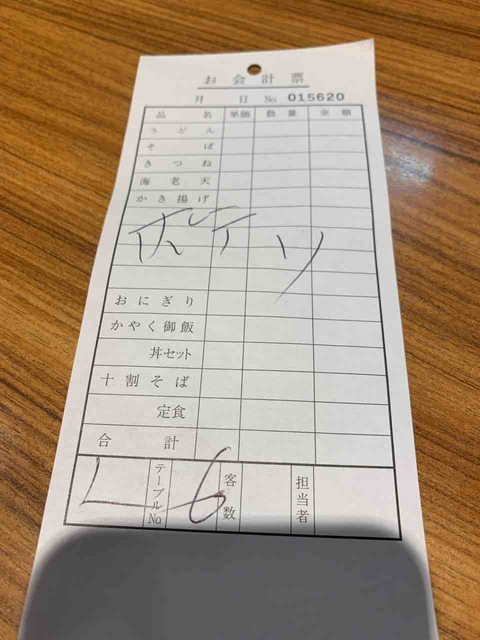 お会計票
月 日 No. 015620
品名 単価 数量 金額
うどん
そば
きつね
海老天
かき揚げ
おにぎり
かやく御飯
丼セット
十割そば
定食
合計
テーブルNo 6 客数 担当者